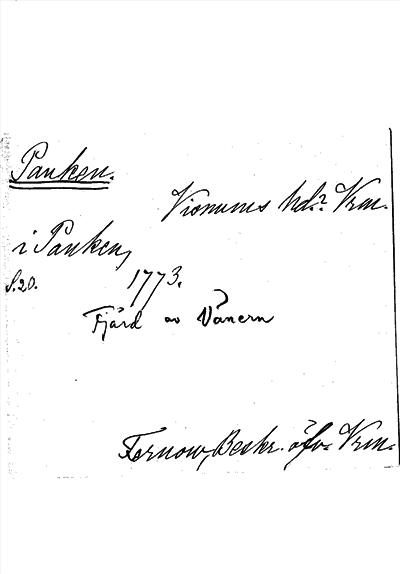 Panken.
Visnums hd.? Vrm.
i Panken,
S. 20.
1773.
Fjärd av Vänern
Fernow, Beskr. öfv. Vrm.